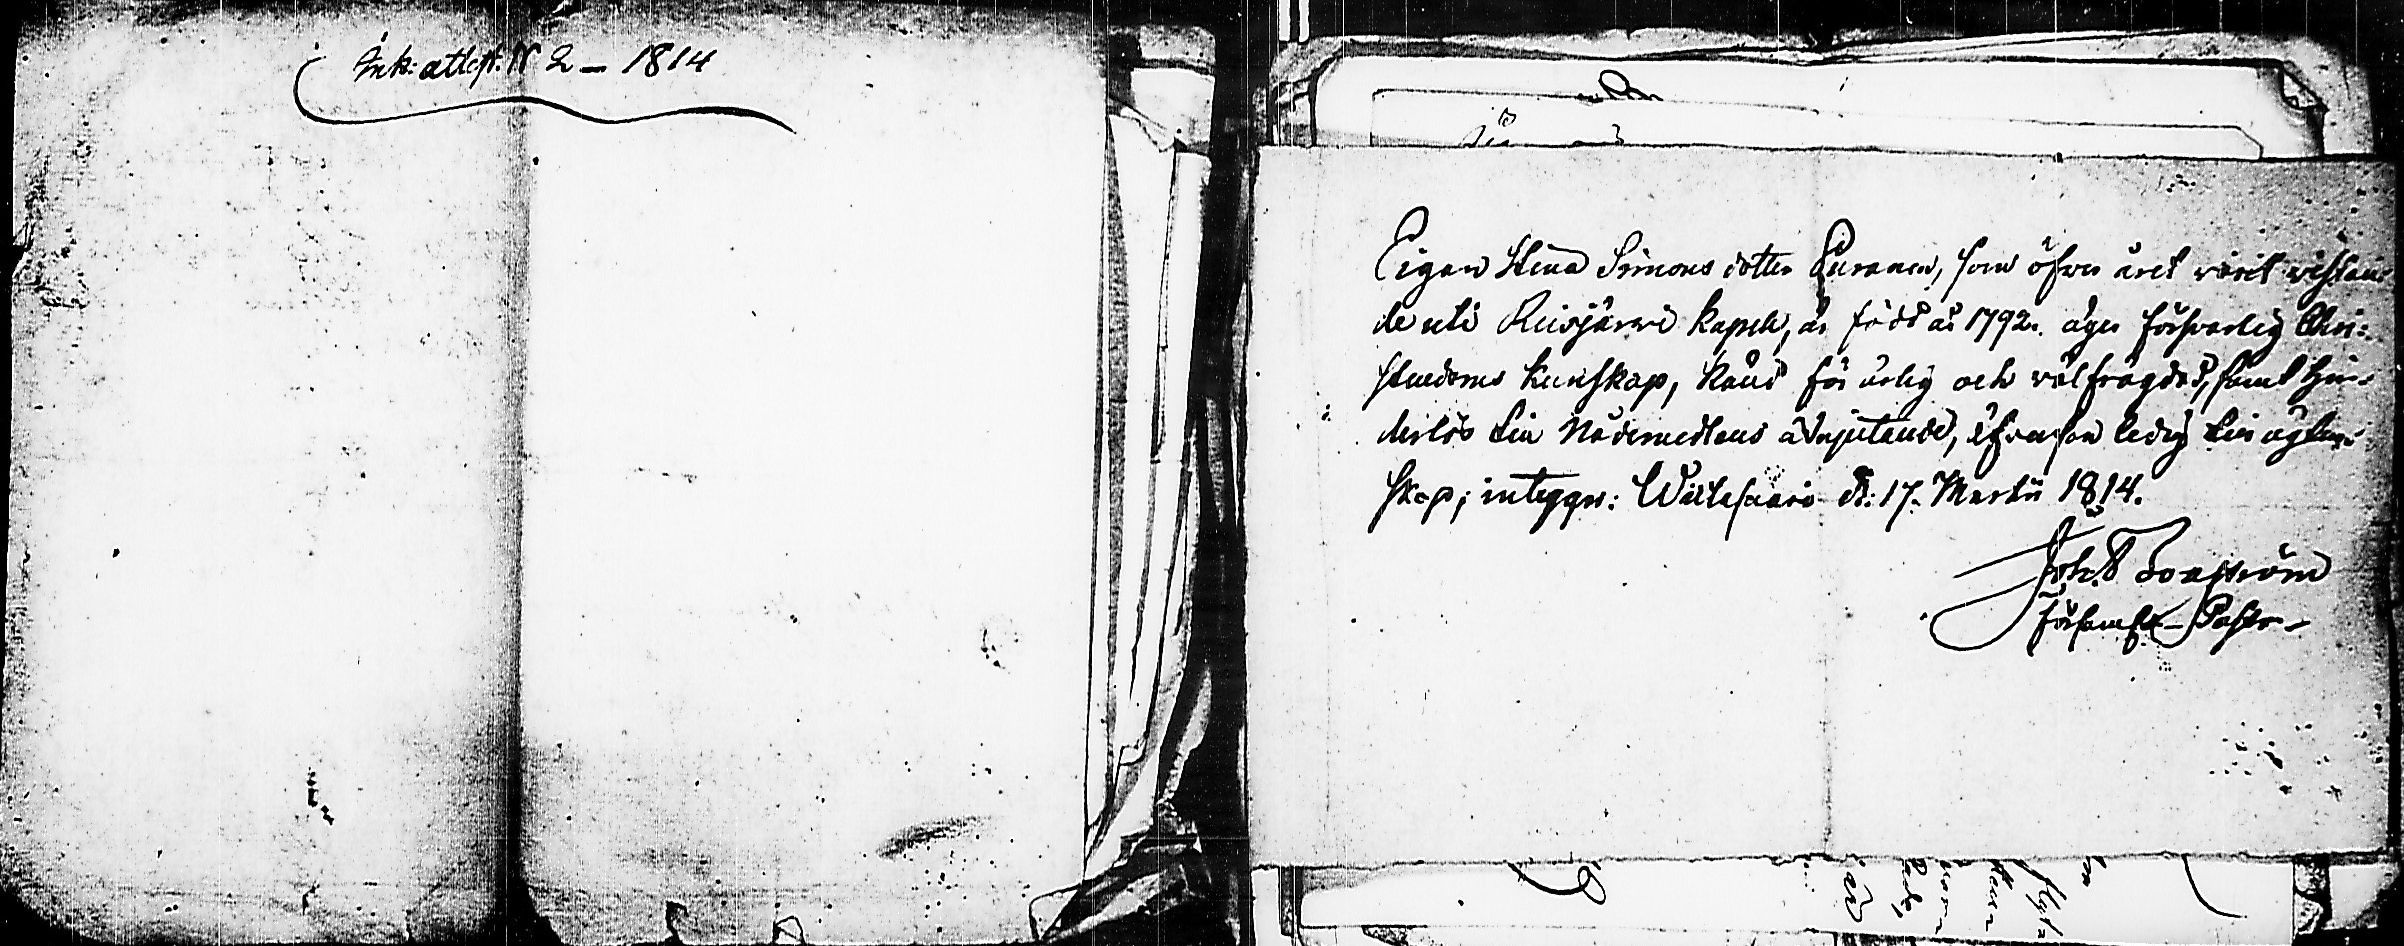 Ink: attest. N 2 – 1814
Pigan Stina Simons dotter Puranen, som öfver året varit vistan-
de uti Reisjärvi kapell, är född år 1792. äger försvarlig Chri-
stendoms Kunskap, känd för ärlig och välfrägdad, samt hin-
derlös til Nådemedlens åtnjutande, äfvensom ledig til ägten-
skap; intygar: Wiitasaari d: 17. Martii 1814.
Joh.
Församl. Pastor